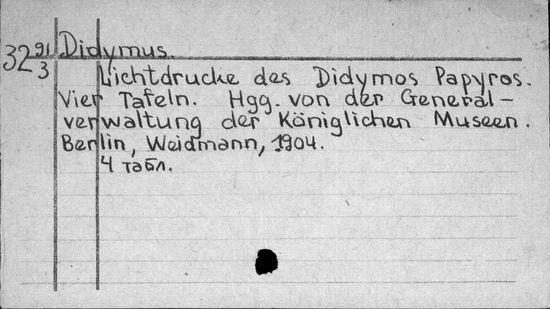 32 91/3
Didymus.
Lichtdrucke des Didymos Papyros.
Vier Tafeln. Hgg. von der General-
verwaltung der Königlichen Museen.
Berlin, Weidmann, 1904.
4 табл.